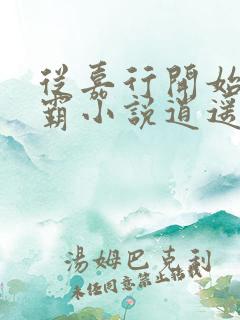 從嘉行開始
霸小說道遙
湯姆巴克利
未經同意禁止轉載